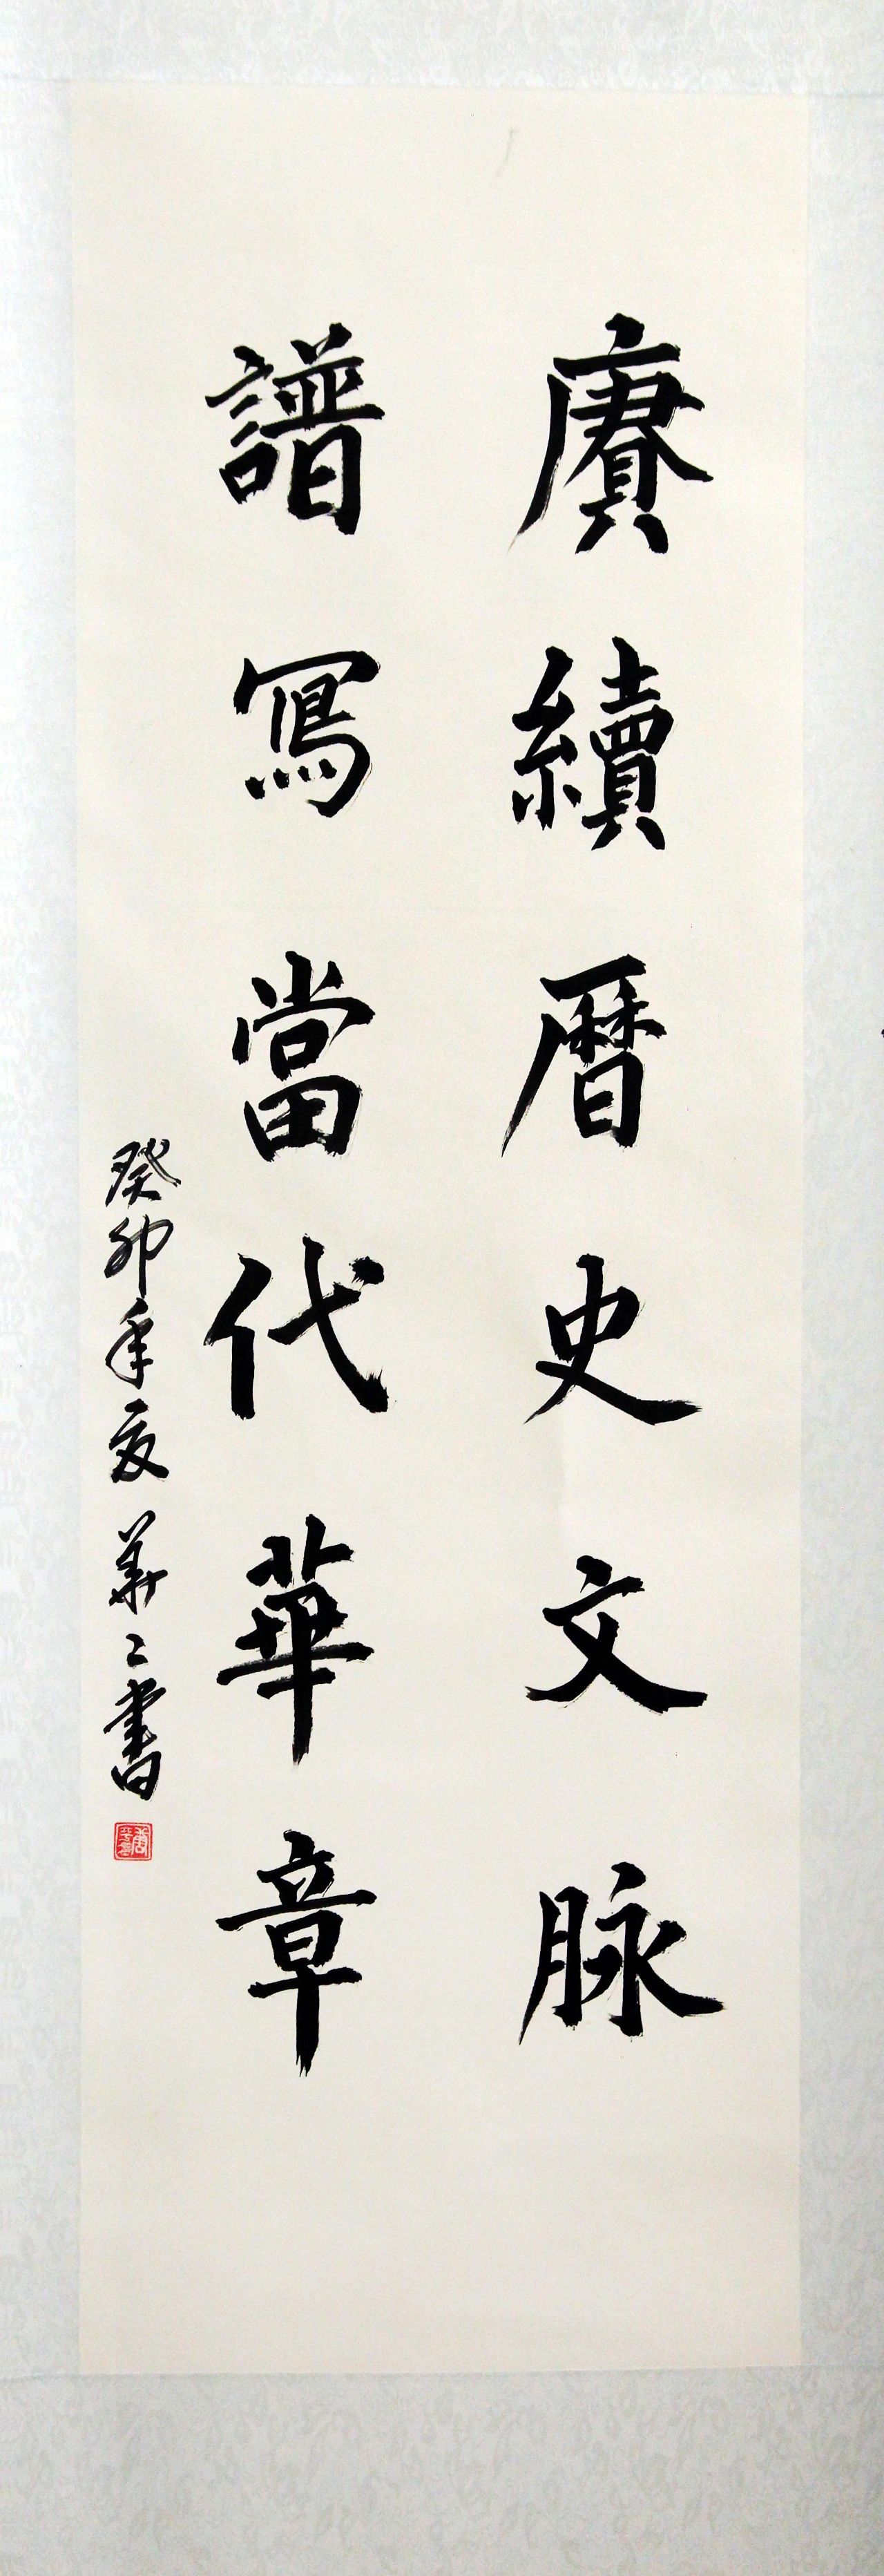 賡續曆史文脉
譜寫當代華章
癸卯年夏華〻書